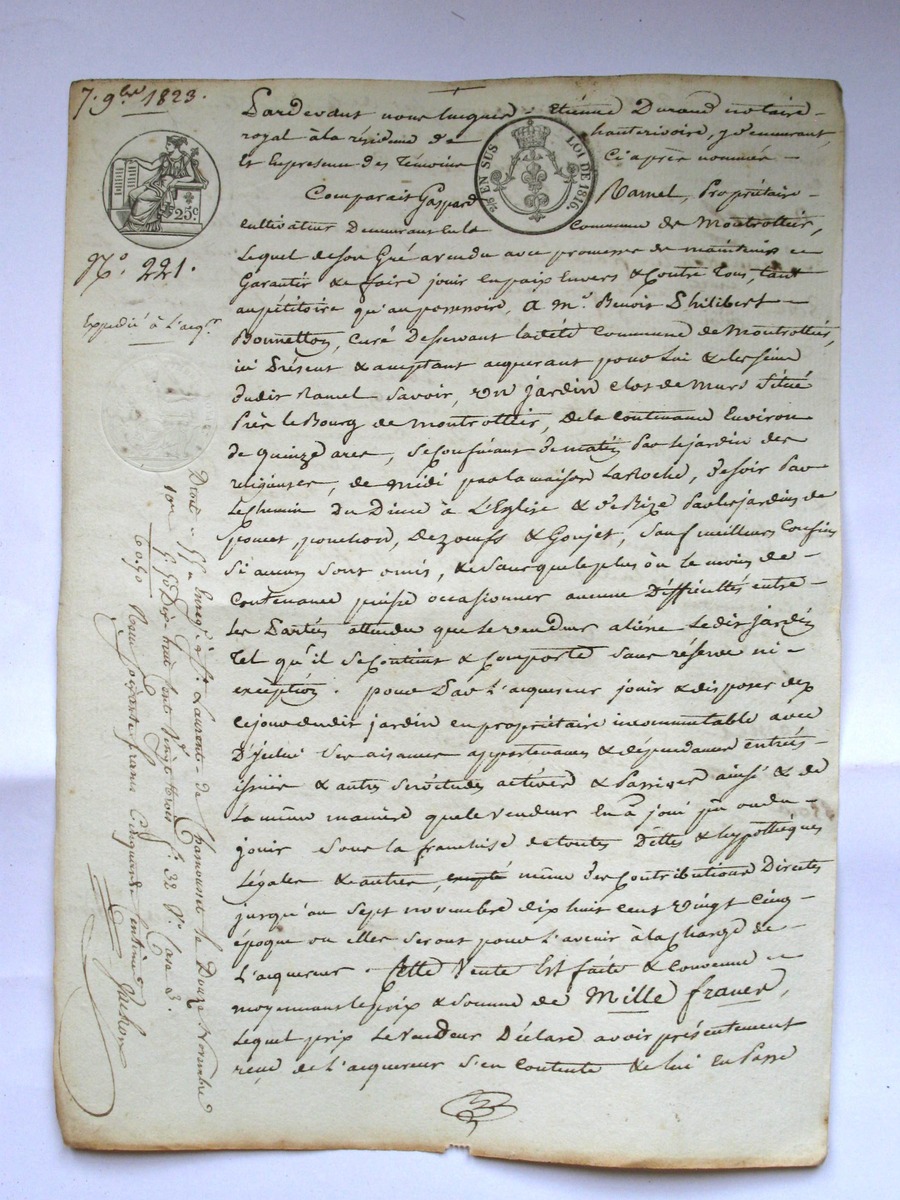 7. 9bre 1823.
25c
No. 221.
Expédié à l'acqr
EN SUS
LOI DE 1816.
Pardevant nous Etienne Durand notaire
royal à la résidence de hauterivoire, y demeurant,
et En présence des Témoins Ci après nommés
Comparait Gaspard Ramel, Propriétaire
cultivateur Demeurant En la commune de Montrottier,
Lequel de son Gré a vendu avec promesse de maintenir
Garantir & faire jouir En paix Envers & Contre Tous, tant
au pétitoire qu'au possessoire, A Mr. Benoit Philibert
Bonnetton, Curé Desservant laditte Commune de Montrottier,
ici Présent & acceptant acquerant pour Lui & les siens
dudit Ramel Savoir, un Jardin Clos de Murs Situé
Près le Bourg de Montrottier, De la Contenance Environ
de quinze ares, Se Confinant De matin Par le jardin des
religieuses, de Midi par la maison LaRoche, De soir Par
Le Chemin Du à L'Eglise & De Bize Par les jardins de
poncet, ponchon, & Goujet, Sauf meilleurs Confins
Si aucuns Sont omis, & Sans que le plus où le moins de
Contenance puisse occasionner aucune Difficultés entre
les Parties attendu que le vendeur aliéne Ledit jardin
tel qu'il Se Contient & Comporte Sans réserve ni
exception. pour Par L'acquereur jouir & disposer dez
ce jour dudit jardin en propriétaire incommutable avec
D'icelui Ses aisances appartenances & dépendances entrées
issues & autres Servitudes actives & Passives ainsi & de
La même manière que le Vendeur En a joui pu ou du
jouir Sous la franchise de toutes Dettes & hypothèques
Légales & autres, excepté même Des Contributions Directes
jusqu'au Sept novembre dix huit cent vingt Cinq
époque où elles Seront pour L'avenir à la Charge de
L'acquereur. Cette Vente Est faite & Convenue
moyennant le prix & Somme de Mille francs,
Lequel prix Le Vendeur Déclare avoir présentement
reçu de L'acquereur S'en Contente & de lui En Passe
Enregé à St. Laurent de Chamousset le Douze Novembre
Dix huit Cent vingt trois fo. 32 Vo. Case 3.
60.50 Reçu Soixante francs Cinquante Centimes